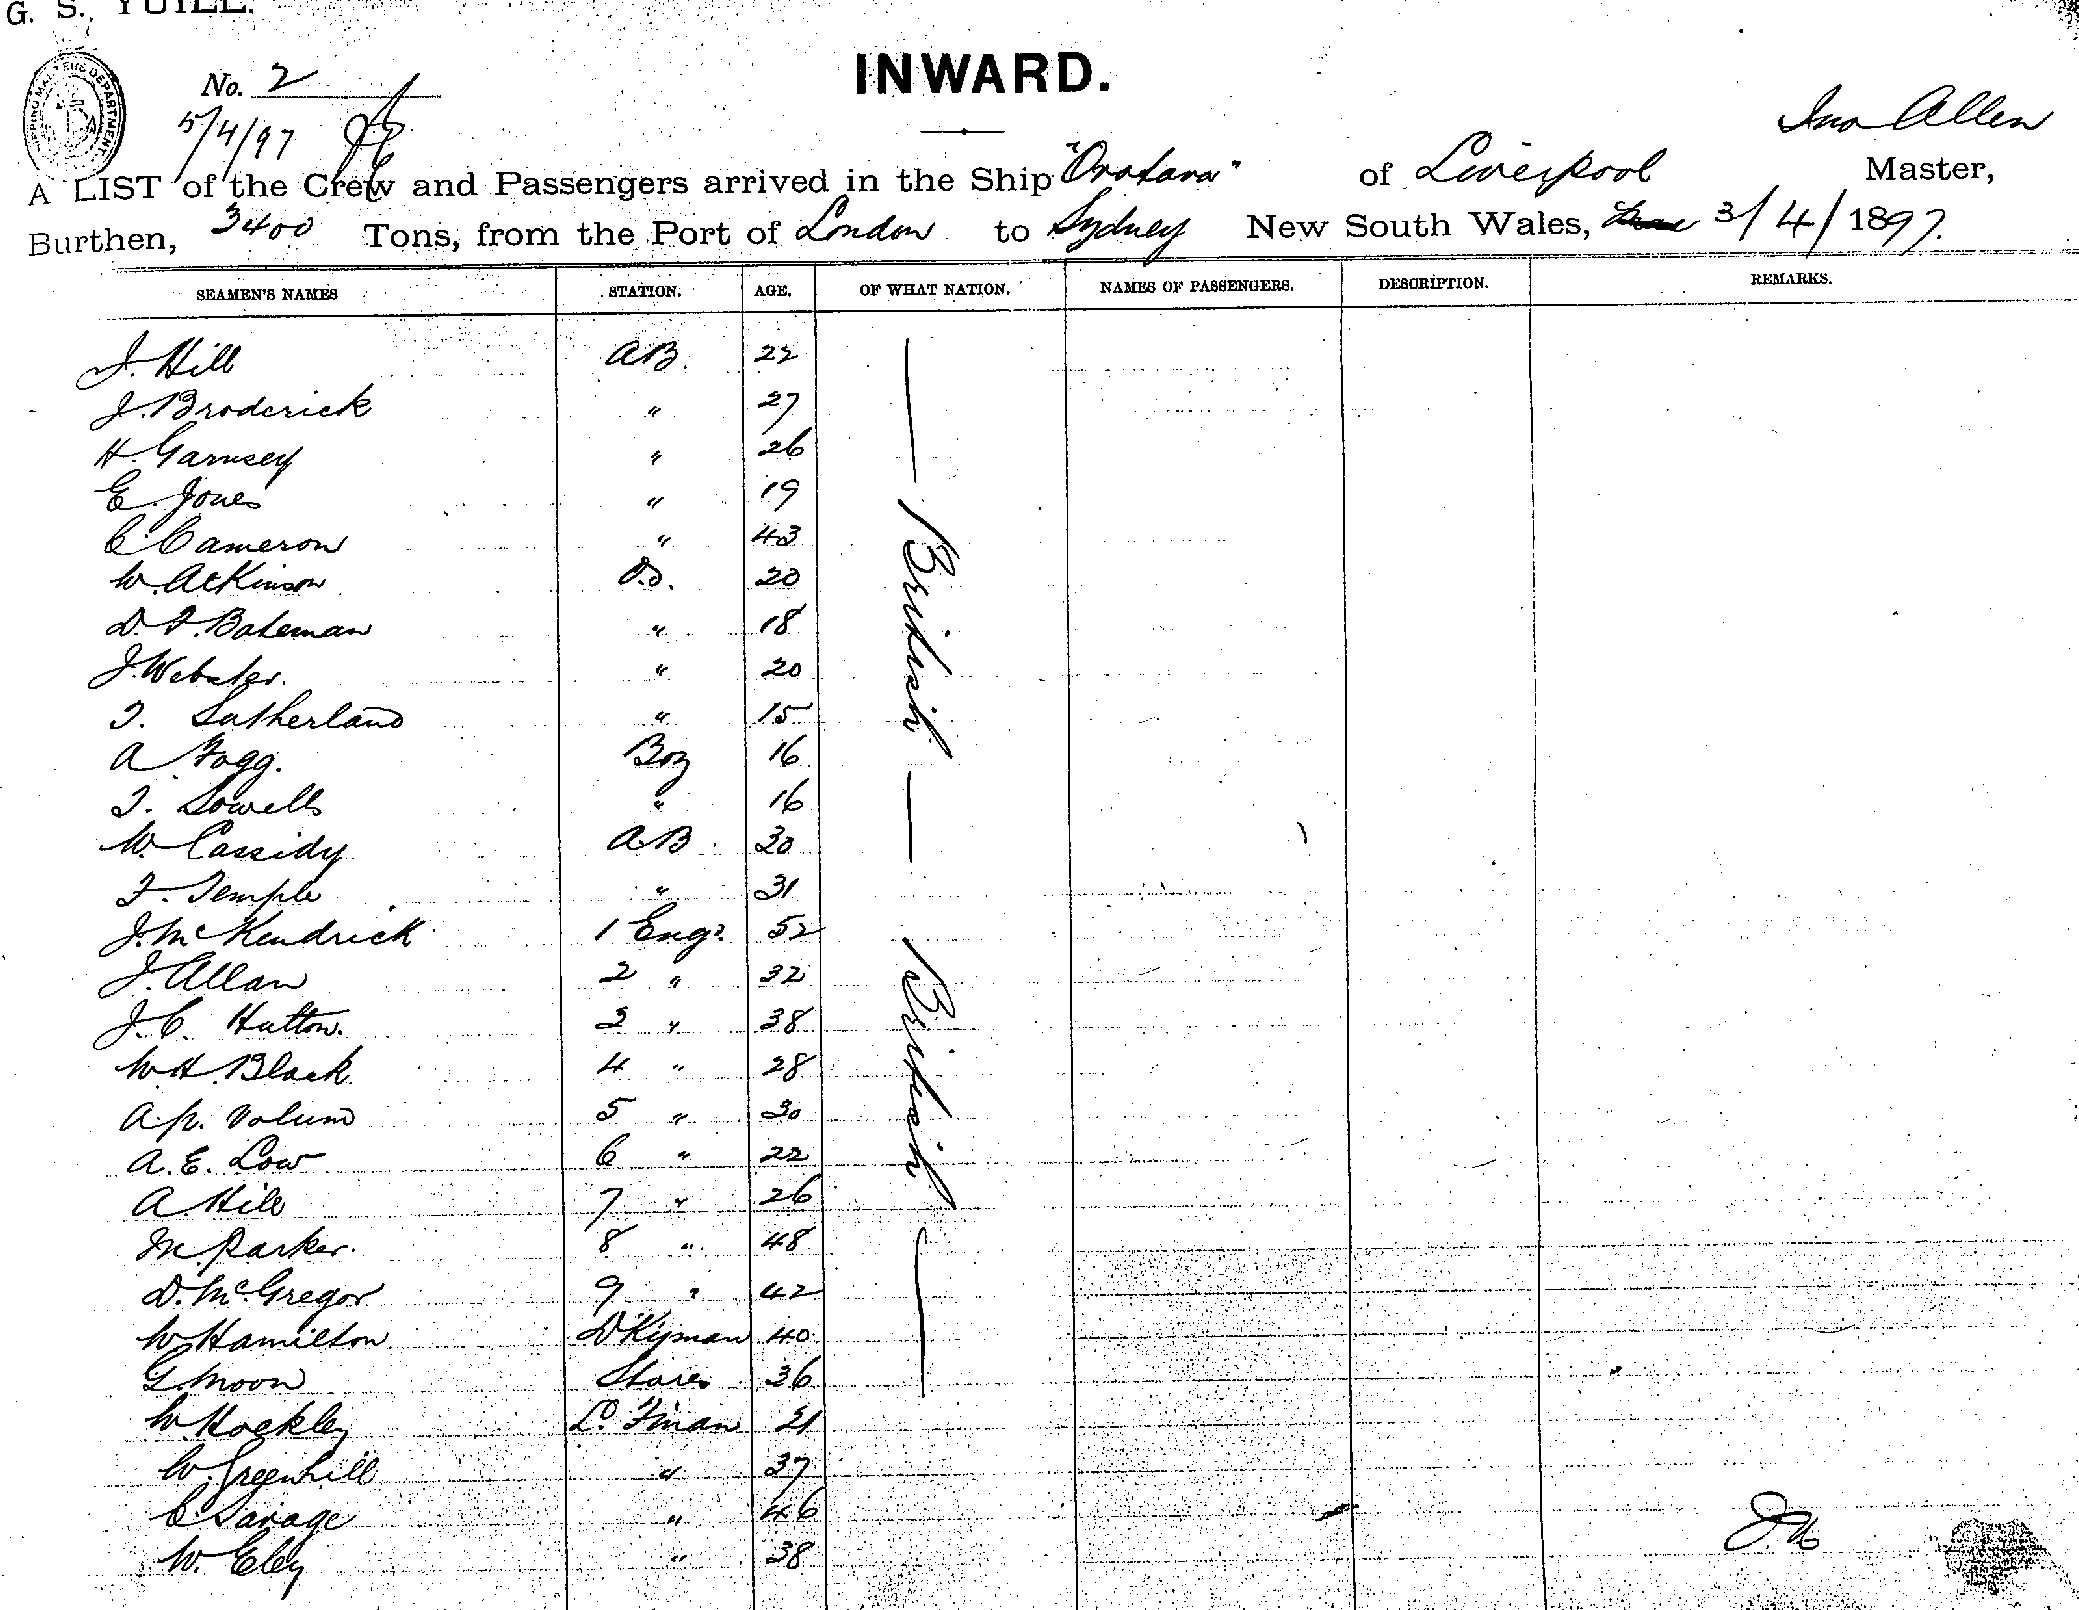 G. S. YUILL.
INWARD.
No. 2
5/4/97
Jno Allen
A LIST of the Crew and Passengers arrived in the Ship "Orotava" of Liverpool Master,
Burthen, 3400 Tons, from the Port of London to Sydney New South Wales, 3/4/1897.
SEAMEN'S NAMES STATION. AGE. OF WHAT NATION. NAMES OF PASSENGERS. DESCRIPTION. REMARKS.
J. Hill AB. 22
J. Broderick " 27
H. Garnsey " 26
E. Jones " 19
C. Cameron " 43
British
W. Atkinson O.S. 20
D. F. Bateman " 18
J. Webster. " 20
T. Sutherland " 15
A Fogg. Boy 16
T. Sowells " 16
W. Cassidy AB. 30
F. Temple " 31
J. McKendrick 1 Engr. 52
J. Allan 2 " 32
British
J. C. Hutton. 3 " 38
W. H. Black. 4 " 28
A. p. Volum 5 " 30
A. E. Low 6 " 22
A. Hill 7 " 26
M. Parker. 8 " 48
D. McGregor 9 " 42
W Hamilton D'Kyman 40
G. Moon Stores 36
W. Hockley Ld. Fman 21
W. Greenhill " 37
C Savage " 46
W. Eley " 38